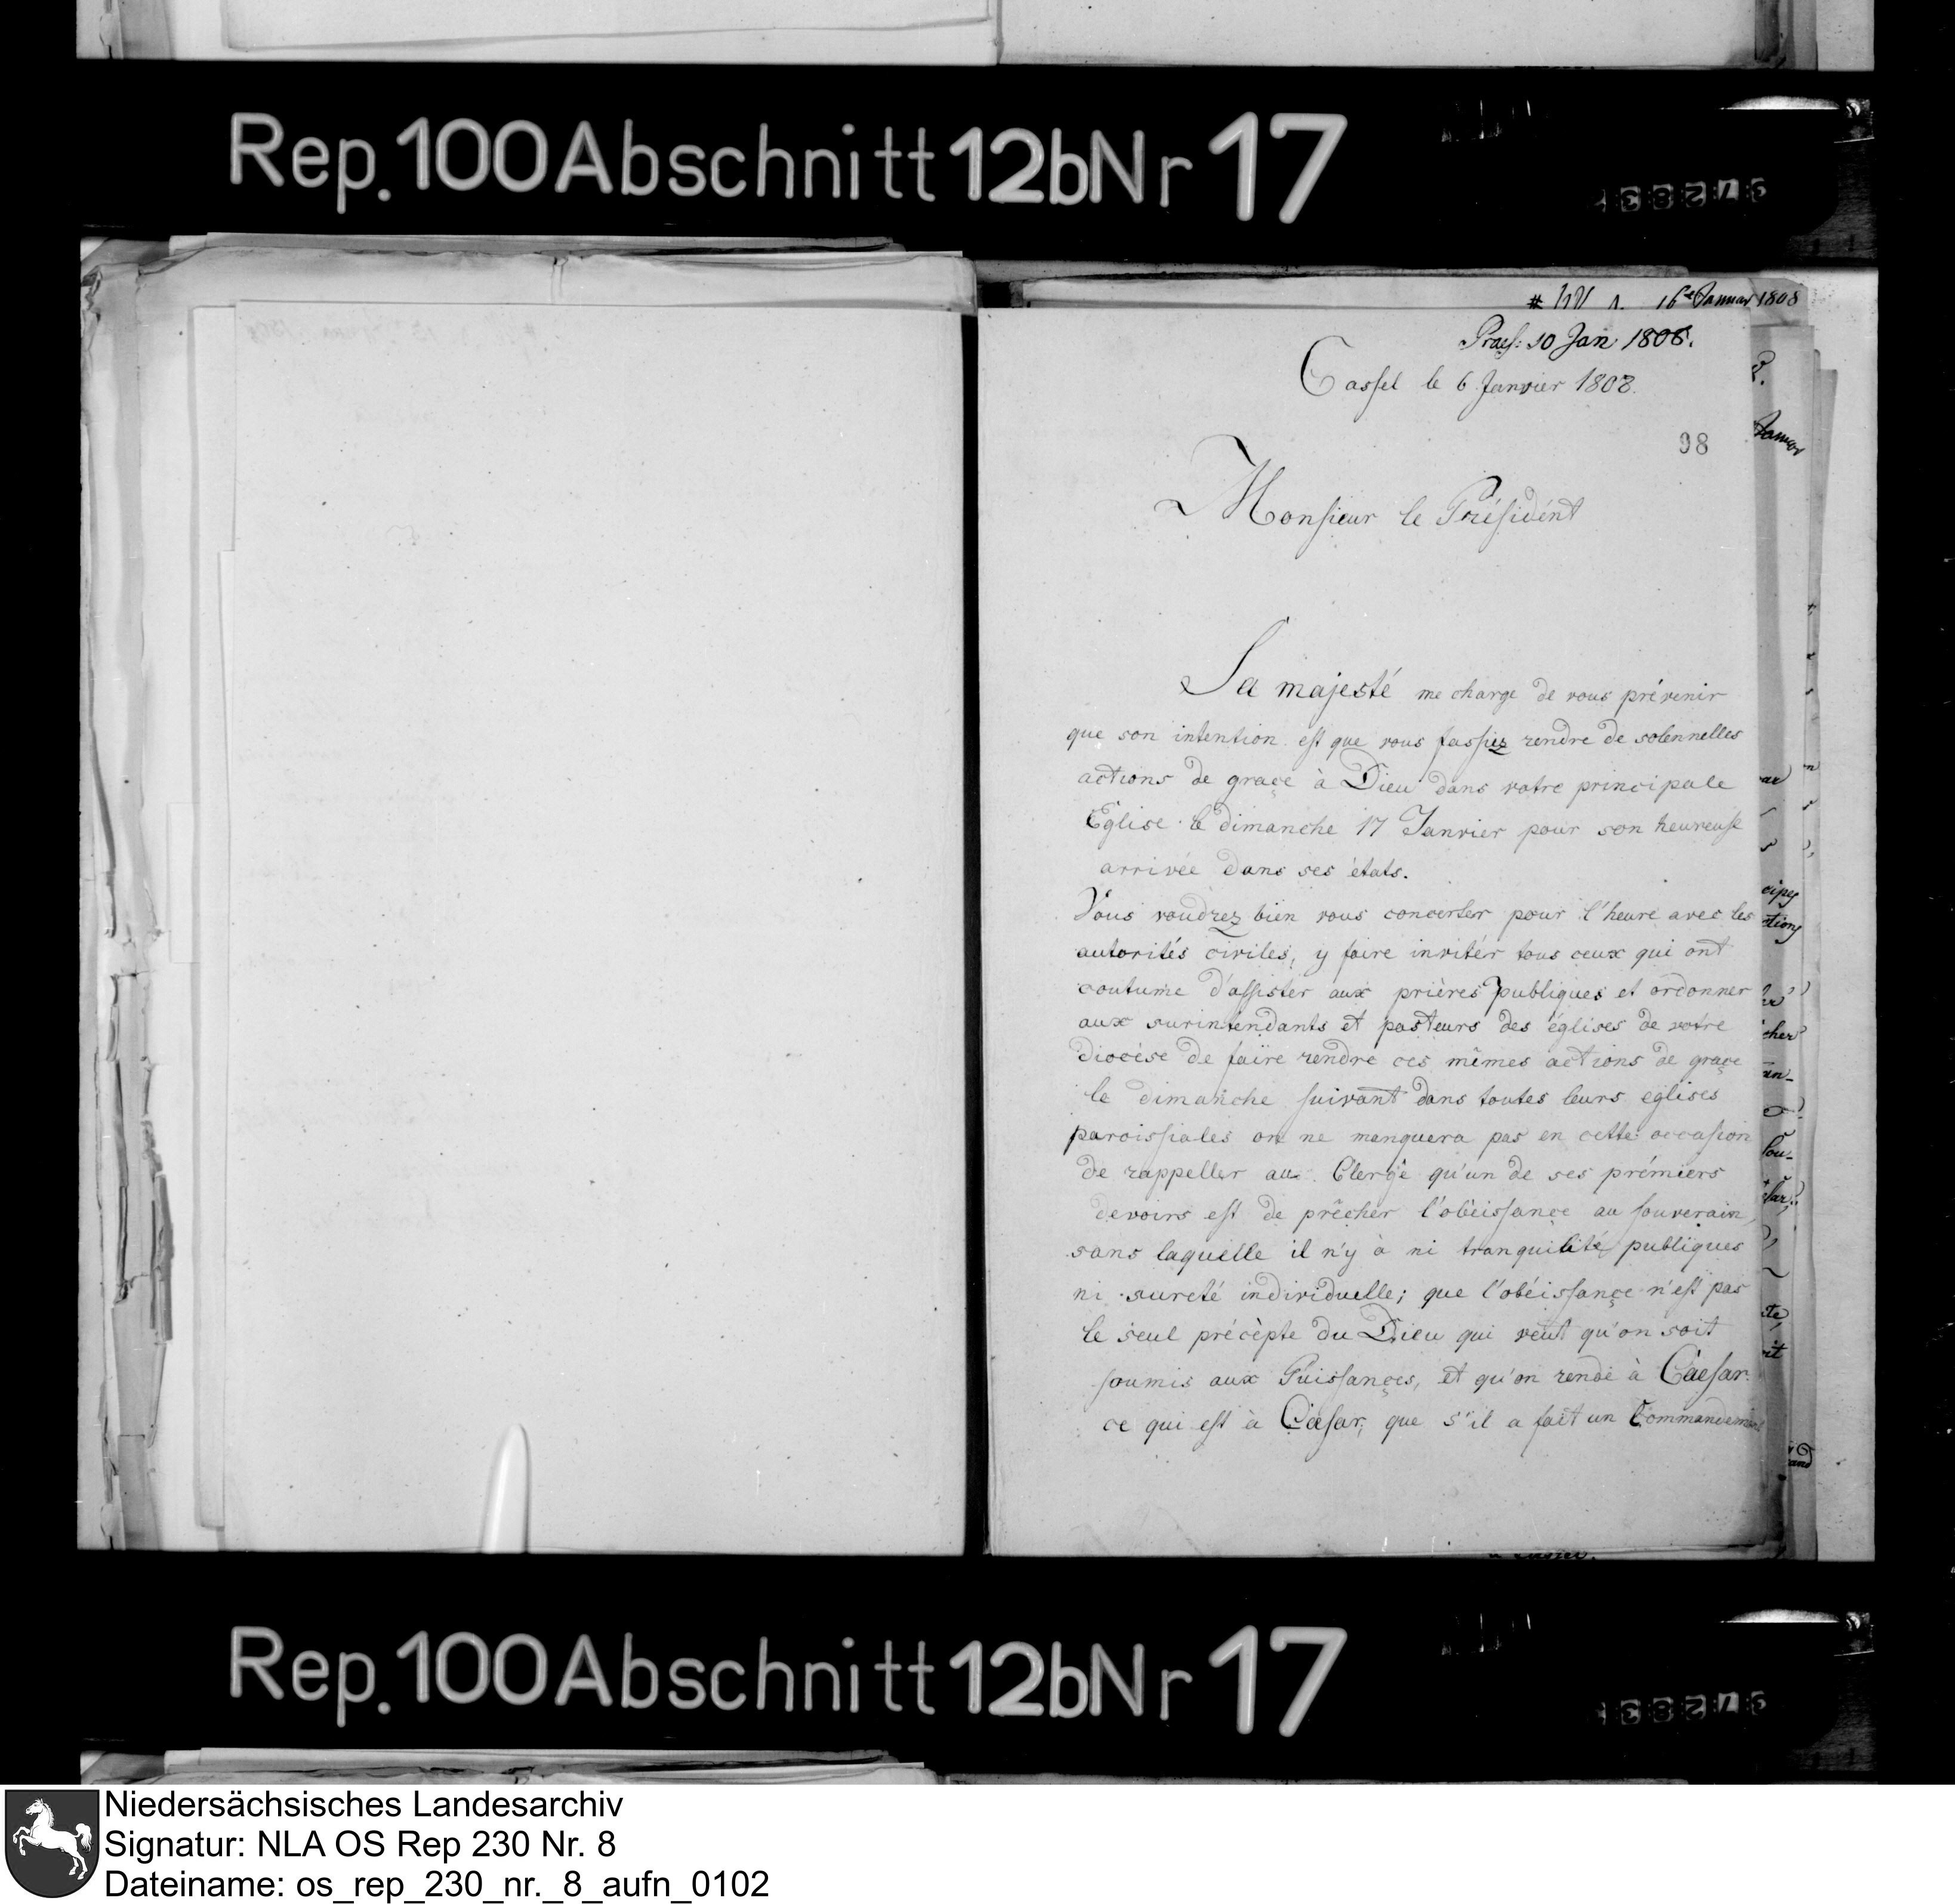 Rep. 100 Abschnitt 12b Nr 17
16t Januar 1808
Praes: 10 Jan 1808.
Cassel le 6 Janvier 1808.
98
Monsieur le Présidént
Sa majesté me charge de vous prévenir
que son intention est que vous fassiez rendre de solennelles
actions de graçe à Dieu dans votre principale
Eglise le dimanche 17 Janvier pour son heureuse
arrivée dans ses états.
Vous voudrez bien vous concerter pour l'heure avec les
autorités civiles, y faire invitér tous ceux qui ont
coutume d'assister aux prières publiques et ordonner
aux surinténdants et pasteurs des églises de votre
diocèse de faire rendre ces mêmes actions de graçe
le dimanche suivant dans toutes leurs eglises
paroissiales on ne manquera pas en cette occasion
de rappeller au Clergé qu'un de ses prémiers
devoirs est de prêcher l'obéissançe au souverain,
sans laquelle il n'y à ni tranquilité publiques
ni sureté individuelle; que l'obéissançe n'est pas
le seul précèpte du Dieu qui veut qu'on soit
soumis aux Puissançes, et qu'on rende à Caesar
ce qui est à Caesar; que s'il a fait un Commandement
Rep. 100 Abschnitt 12b Nr 17
Niedersächsisches Landesarchiv
Signatur: NLA OS Rep 230 Nr. 8
Dateiname: os_rep_230_nr._8_aufn_0102